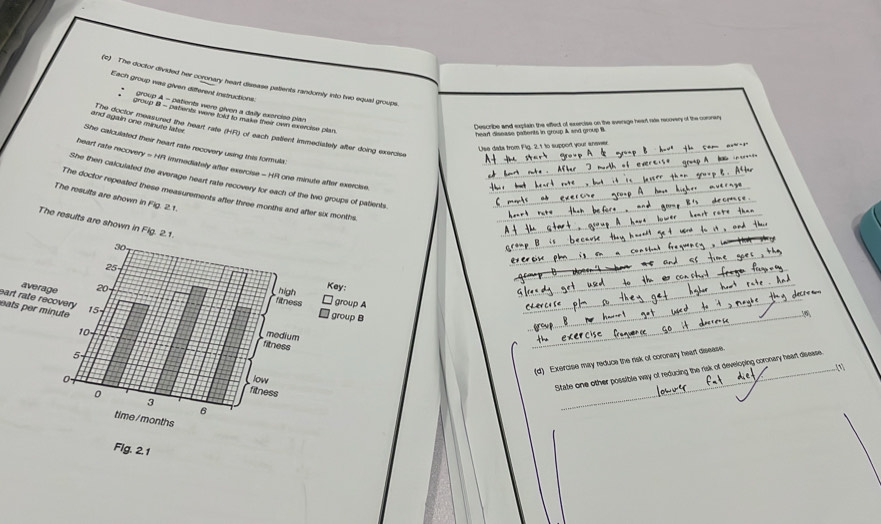 (c) The doctor divided her coronary heart disease patients randomly into two equal groups.
Each group was given different instructions:
• group A – patients were given a daily exercise plan
• group B – patients were told to make their own exercise plan.
The doctor measured the heart rate (HR) of each patient immediately after doing exercise
and again one minute later.
She calculated their heart rate recovery using this formula:
heart rate recovery = HR immediately after exercise – HR one minute after exercise.
She then calculated the average heart rate recovery for each of the two groups of patients.
The doctor repeated these measurements after three months and after six months.
The results are shown in Fig. 2.1.
The results are shown in Fig. 2.1.
30
25
20
15
10
5
0
average
heart rate recovery
beats per minute
0
3
6
time/months
high
fitness
medium
fitness
low
fitness
Key:
group A
group B
Fig. 2.1
Describe and explain the effect of exercise on the average heart rate recovery of the coronary
heart disease patients in group A and group B.
Use data from Fig. 2.1 to support your answer.
At the start group A & group B have the same average
heart rate. After 3 month of exercise group A increase
heart rate, but it is lesser than group B. After
6 month of exercise group A have higher average
heart rate than before, and group B's decrease.
At the start, group A have lower heart rate than
group B is because they haven't get used to it, and their
exercise plan is on a constant frequency,
and as time goes, they
already get used to the constant frequency
exercise plan so they get higher heart rate. And
group B haven't get used to it, maybe they decrease
the exercise frequence so it decrease
[6]
(d) Exercise may reduce the risk of coronary heart disease.
State one other possible way of reducing the risk of developing coronary heart disease.
lower fat diet
[1]